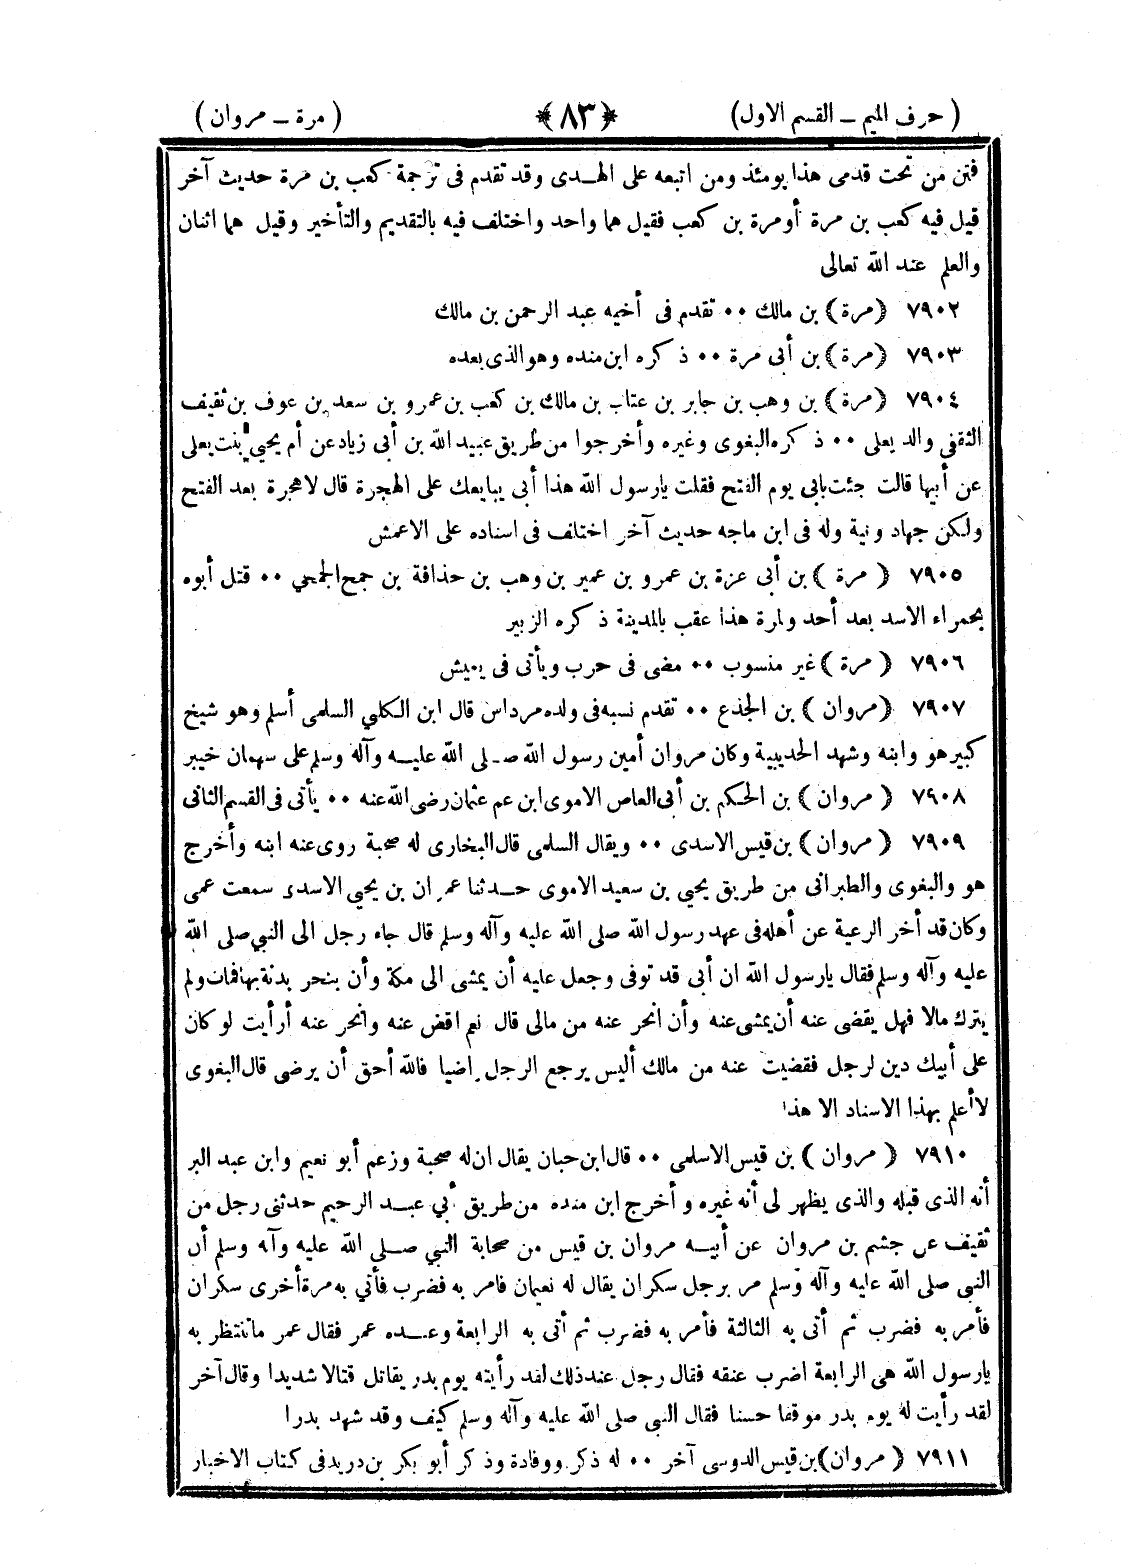 ( حرف الميم ــ القسم الاول) ﴿٨٣﴾ ( مرة ــ مروان )
فتن من تحت قدمى هذا يومئذ ومن اتبعه على الهدى وقد تقدم فى ترجمة كعب بن مرة حديث آخر
قيل فيه كعب بن مرة أومرة بن كعب فقيل هما واحد واختلف فيه بالتقديم والتأخير وقيل هما اثنان
والعلم عند الله تعالى
٧٩٠٢ ﴿مرة﴾ بن مالك ٠٠ تقدم فى أخيه عبد الرحمن بن مالك
٧٩٠٣ ﴿مرة﴾ بن أبى مرة ٠٠ ذكره ابن منده وهو الذى بعده
٧٩٠٤ ﴿مرة﴾ بن وهب بن جابر بن عتاب بن مالك بن كعب بن عمرو بن سعد بن عوف بن ثقيف
الثقفى والد يعلى ٠٠ ذكره البغوى وغيره وأخرجوا من طريق عبيد الله بن أبى زياد عن أم يحيى بنت يعلى
عن أبيها قالت جئت بابى يوم الفتح فقلت يارسول الله هذا أبى يبايعك على الهجرة قال لاهجرة بعد الفتح
ولكن جهاد ونية وله فى ابن ماجه حديث آخر اختلف فى اسناده على الاعمش
٧٩٠٥ ﴿ مرة ﴾ بن أبى عزة بن عمرو بن عمير بن وهب بن حذافة بن جمح الجمحي ٠٠ قتل أبوه
بحمراء الاسد بعد أحد ولمرة هذا عقب بالمدينة ذكره الزبير
٧٩٠٦ ﴿ مرة ﴾ غير منسوب ٠٠ مضى فى حرب ويأتى فى يعيش
٧٩٠٧ ﴿مروان ﴾ بن الجذع ٠٠ تقدم نسبه فى ولده مرداس قال ابن الكلبي السلمى أسلم وهو شيخ
كبير هو وابنه وشهد الحديبية وكان مروان أمين رسول الله صلى الله عليه وآله وسلم على سهمان خيبر
٧٩٠٨ ﴿ مروان ﴾ بن الحكم بن أبى العاص الاموى ابن عم عثمان رضى الله عنه ٠٠ يأتى فى القسم الثانى
٧٩٠٩ ﴿ مروان﴾ بن قيس الاسدى ٠٠ ويقال السلمى قال البخارى له صحبة روى عنه ابنه وأخرج
هو والبغوى والطبرانى من طريق يحيى بن سعيد الاموى حدثنا عمران بن يحيى الاسدى سمعت عمى
وكان قد أخر الرعية عن أهله فى عهد رسول الله صلى الله عليه وآله وسلم قال جاء رجل الى النبي صلى الله
عليه وآله وسلم فقال يارسول الله ان أبى قد توفى وجعل عليه أن يمشى الى مكة وأن ينحر بدنة بها فمات ولم
يترك مالا فهل يقضى عنه أن يمشى عنه وأن انحر عنه من مالى قال نعم اقض عنه وانحر عنه أرأيت لو كان
على أبيك دين لرجل فقضيت عنه من مالك أليس يرجع الرجل راضيا فالله أحق أن يرضى قال البغوى
لاأعلم بهذا الاسناد الا هذا
٧٩١٠ ﴿ مروان ﴾ بن قيس الاسلمى ٠٠ قال ابن حبان يقال ان له صحبة وزعم أبو نعيم وابن عبد البر
أنه الذى قبله والذى يظهر لى أنه غيره و أخرج ابن منده من طريق أبي عبد الرحيم حدثنى رجل من
ثقيف عن جشم بن مروان عن أبيه مروان بن قيس من صحابة النبي صلى الله عليه وآله وسلم أن
النبى صلى الله عليه وآله وسلم مر برجل سكران يقال له نعيمان فامر به فضرب فأتي به مرة أخرى سكران
فأمر به فضرب ثم أتى به الثالثة فأمر به فضرب ثم أتى به الرابعة وعنده عمر فقال عمر ماتنتظر به
يارسول الله هى الرابعة اضرب عنقه فقال رجل عند ذلك لقد رأيته يوم بدر يقاتل قتالا شديدا وقال آخر
لقد رأيت له يوم بدر موقفا حسنا فقال النبى صلى الله عليه وآله وسلم كيف وقد شهد بدرا
٧٩١١ ﴿ مروان﴾ بن قيس الدوسى آخر ٠٠ له ذكر ووفادة وذكر أبو بكر بن دريد فى كتاب الاخبار